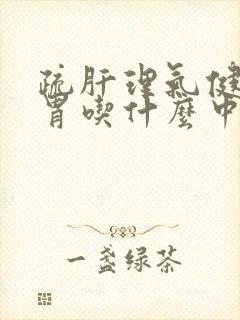 疏肝理氣健
胃喫什麼中
一盞绿茶